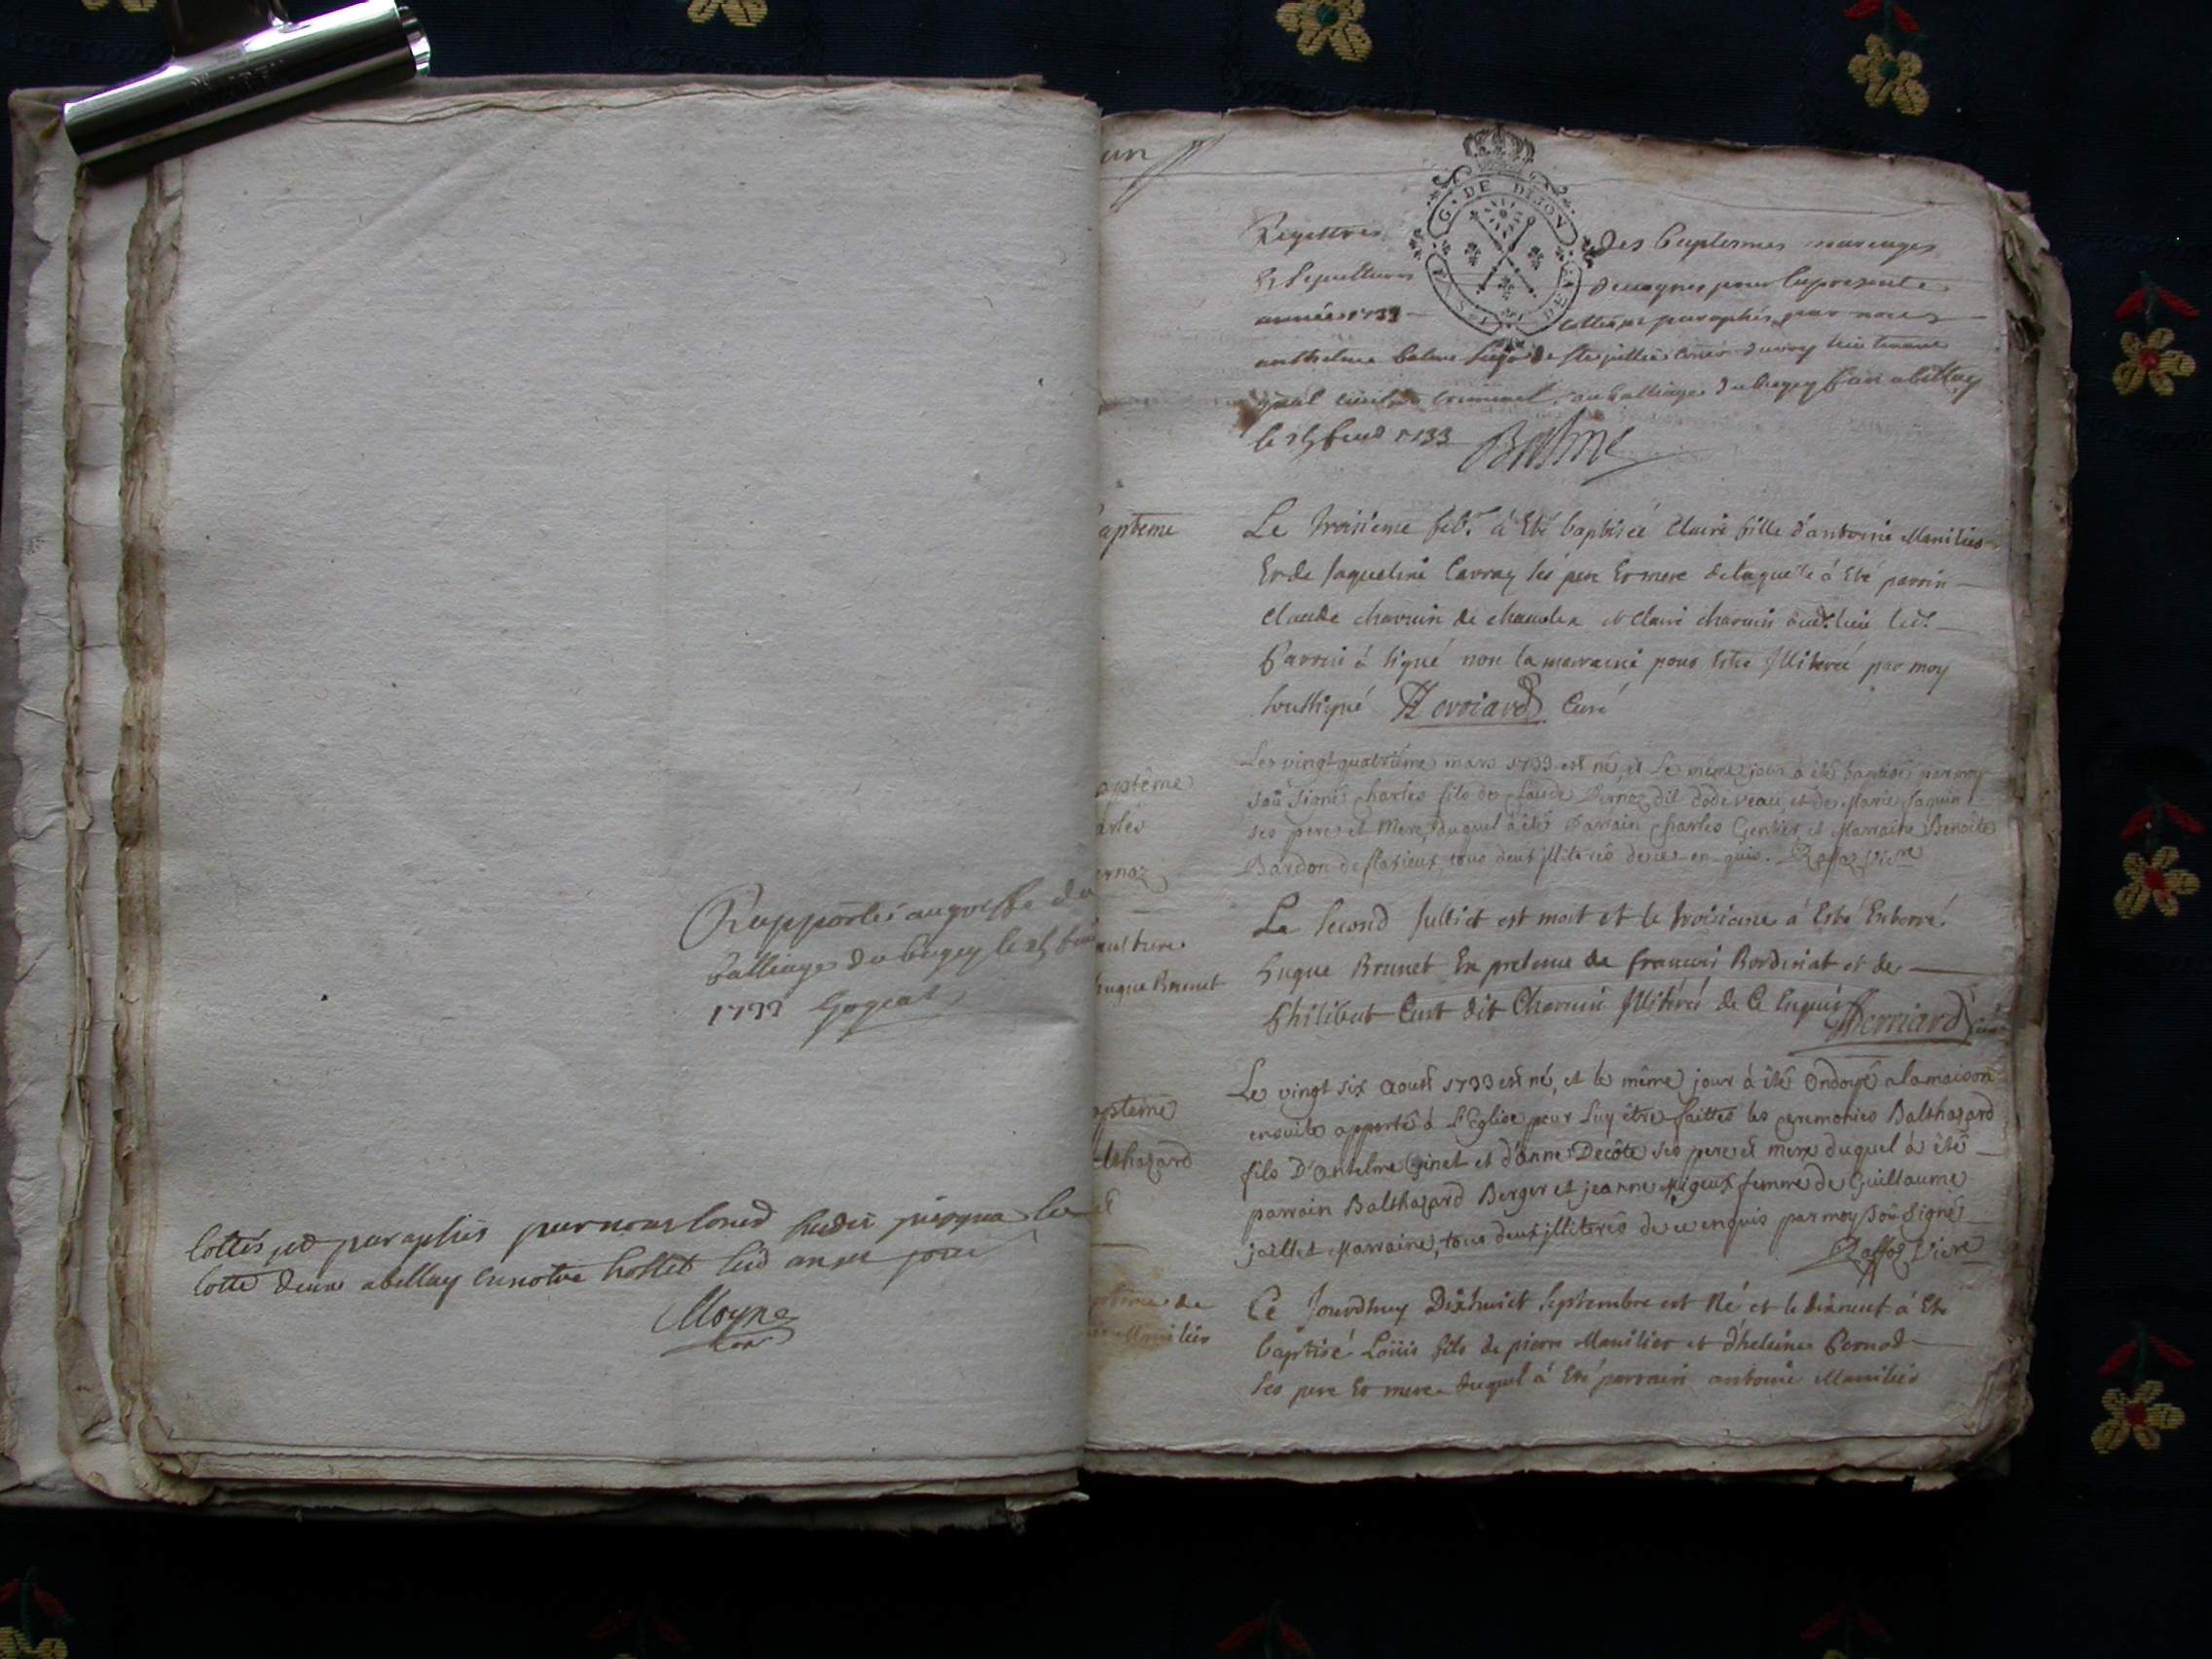 Rapportés au greffe du
balliage du bugey le
1733
cottés et paraphés par nous
cotté deux a bellay en notre hostel
Moyne
un
G. DE DIJON
Registres des baptesmes mariages
et sepultures pour la presente
année 1733 cottés et paraphés par nous
anthelme balme lieutenant
civil et criminel au balliage du bugey fait a bellay
le 1733 Balme
apteme
Le troisieme feb. à Eté baptiseé Claire fille d'antoine Manilier
Et de Jaqueline Carray ses pere Et mere de laquelle à Eté parrin
Claude charvin de et Claire charvin dud. lieu led.
Parrin à signé non la marraine pour estre Illiteré par moy
soussigné Curé
aptême
arles
ernaz
Le vingt quatriéme mars 1733 est né, et le même jour à été baptisé par moy
soû signé Charles fils de Claude Pernaz dit et de Marie Jaquin
ses pere et Mere, duquel à été Parrain Charles et Marraine Benoite
Bardon de flaxieux, tous deux illiterés de ce en quis. Raffoz Vic.re
ulture
hugue Brunet
Le second Juillet est mort et le troisieme à Esté Enterré
hugue Brunet En presence de francois Bordiriat et de
Philibert Curt dit Charvin Illiteré de Ce Enquis
apteme
althazard
Le vingt six Aoust 1733 est né, et le même jour à été Ondoyé a la maison
ensuite apporté à L'Eglise pour luy être faittes les ceremonies Balthazard
fils D'Antelme Ginet et d'anne Decôte ses pere et mere duquel à été
parrain Balthazard Berger et jeanne femme de Guillaume
jaillet Marraine, tous deux illiterés de ce enquis par moy soû signé
Raffoz Vicre
de
Manilier
Ce Jourdhuy Dixhuict Septembre est Né et le à Eté
baptisé Loüis fils de pierre Manilier et d'heleine Pernod
ses pere Et mere duquel à Eté parrain antoine Manilier